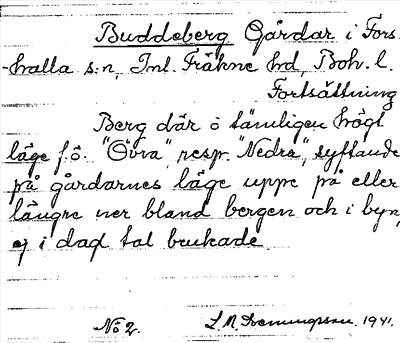 Buddeberg Gårdar i Fors-
hälla s:n, Inl. Fräkne hd, Boh. l.
Fortsättning
Berg där ö tämligen högt
läge f.ö. "Övra", resp. "Nedre", syftande
på gårdarnes läge uppe på eller
längre ner bland bergen och i byn,
ej i dagl tal brukade.
No 2. 1941.